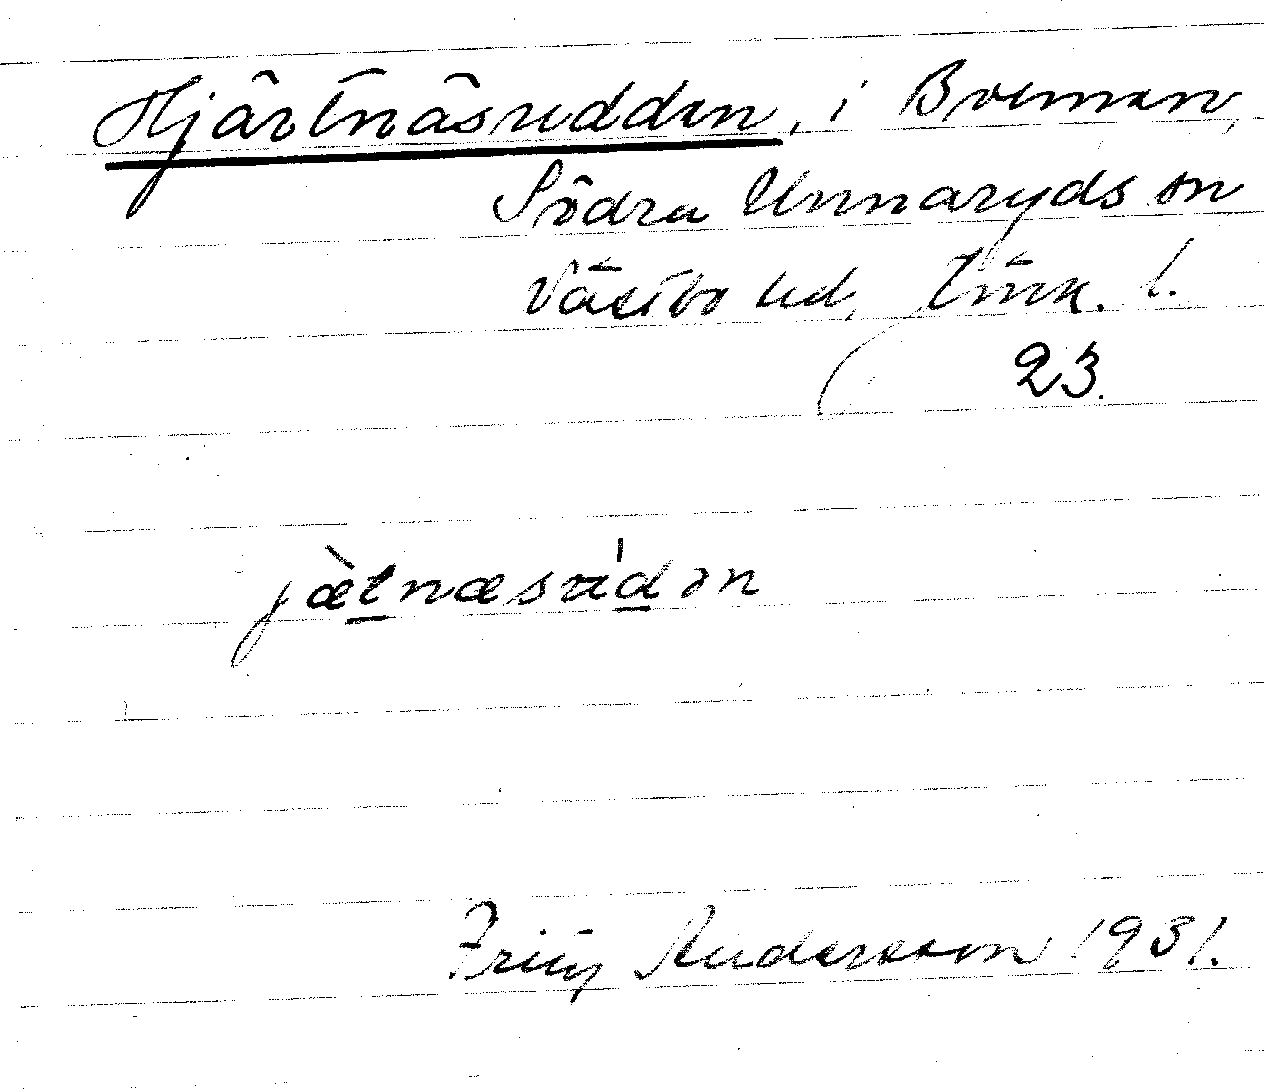 Hjärtnäsudden, i Breman,
Södra Unnaryds sn
Västbo hd, Jönk. l.
23.
jæ̀t̲næsu̇d̲ən
Fritz Andersson 1931.